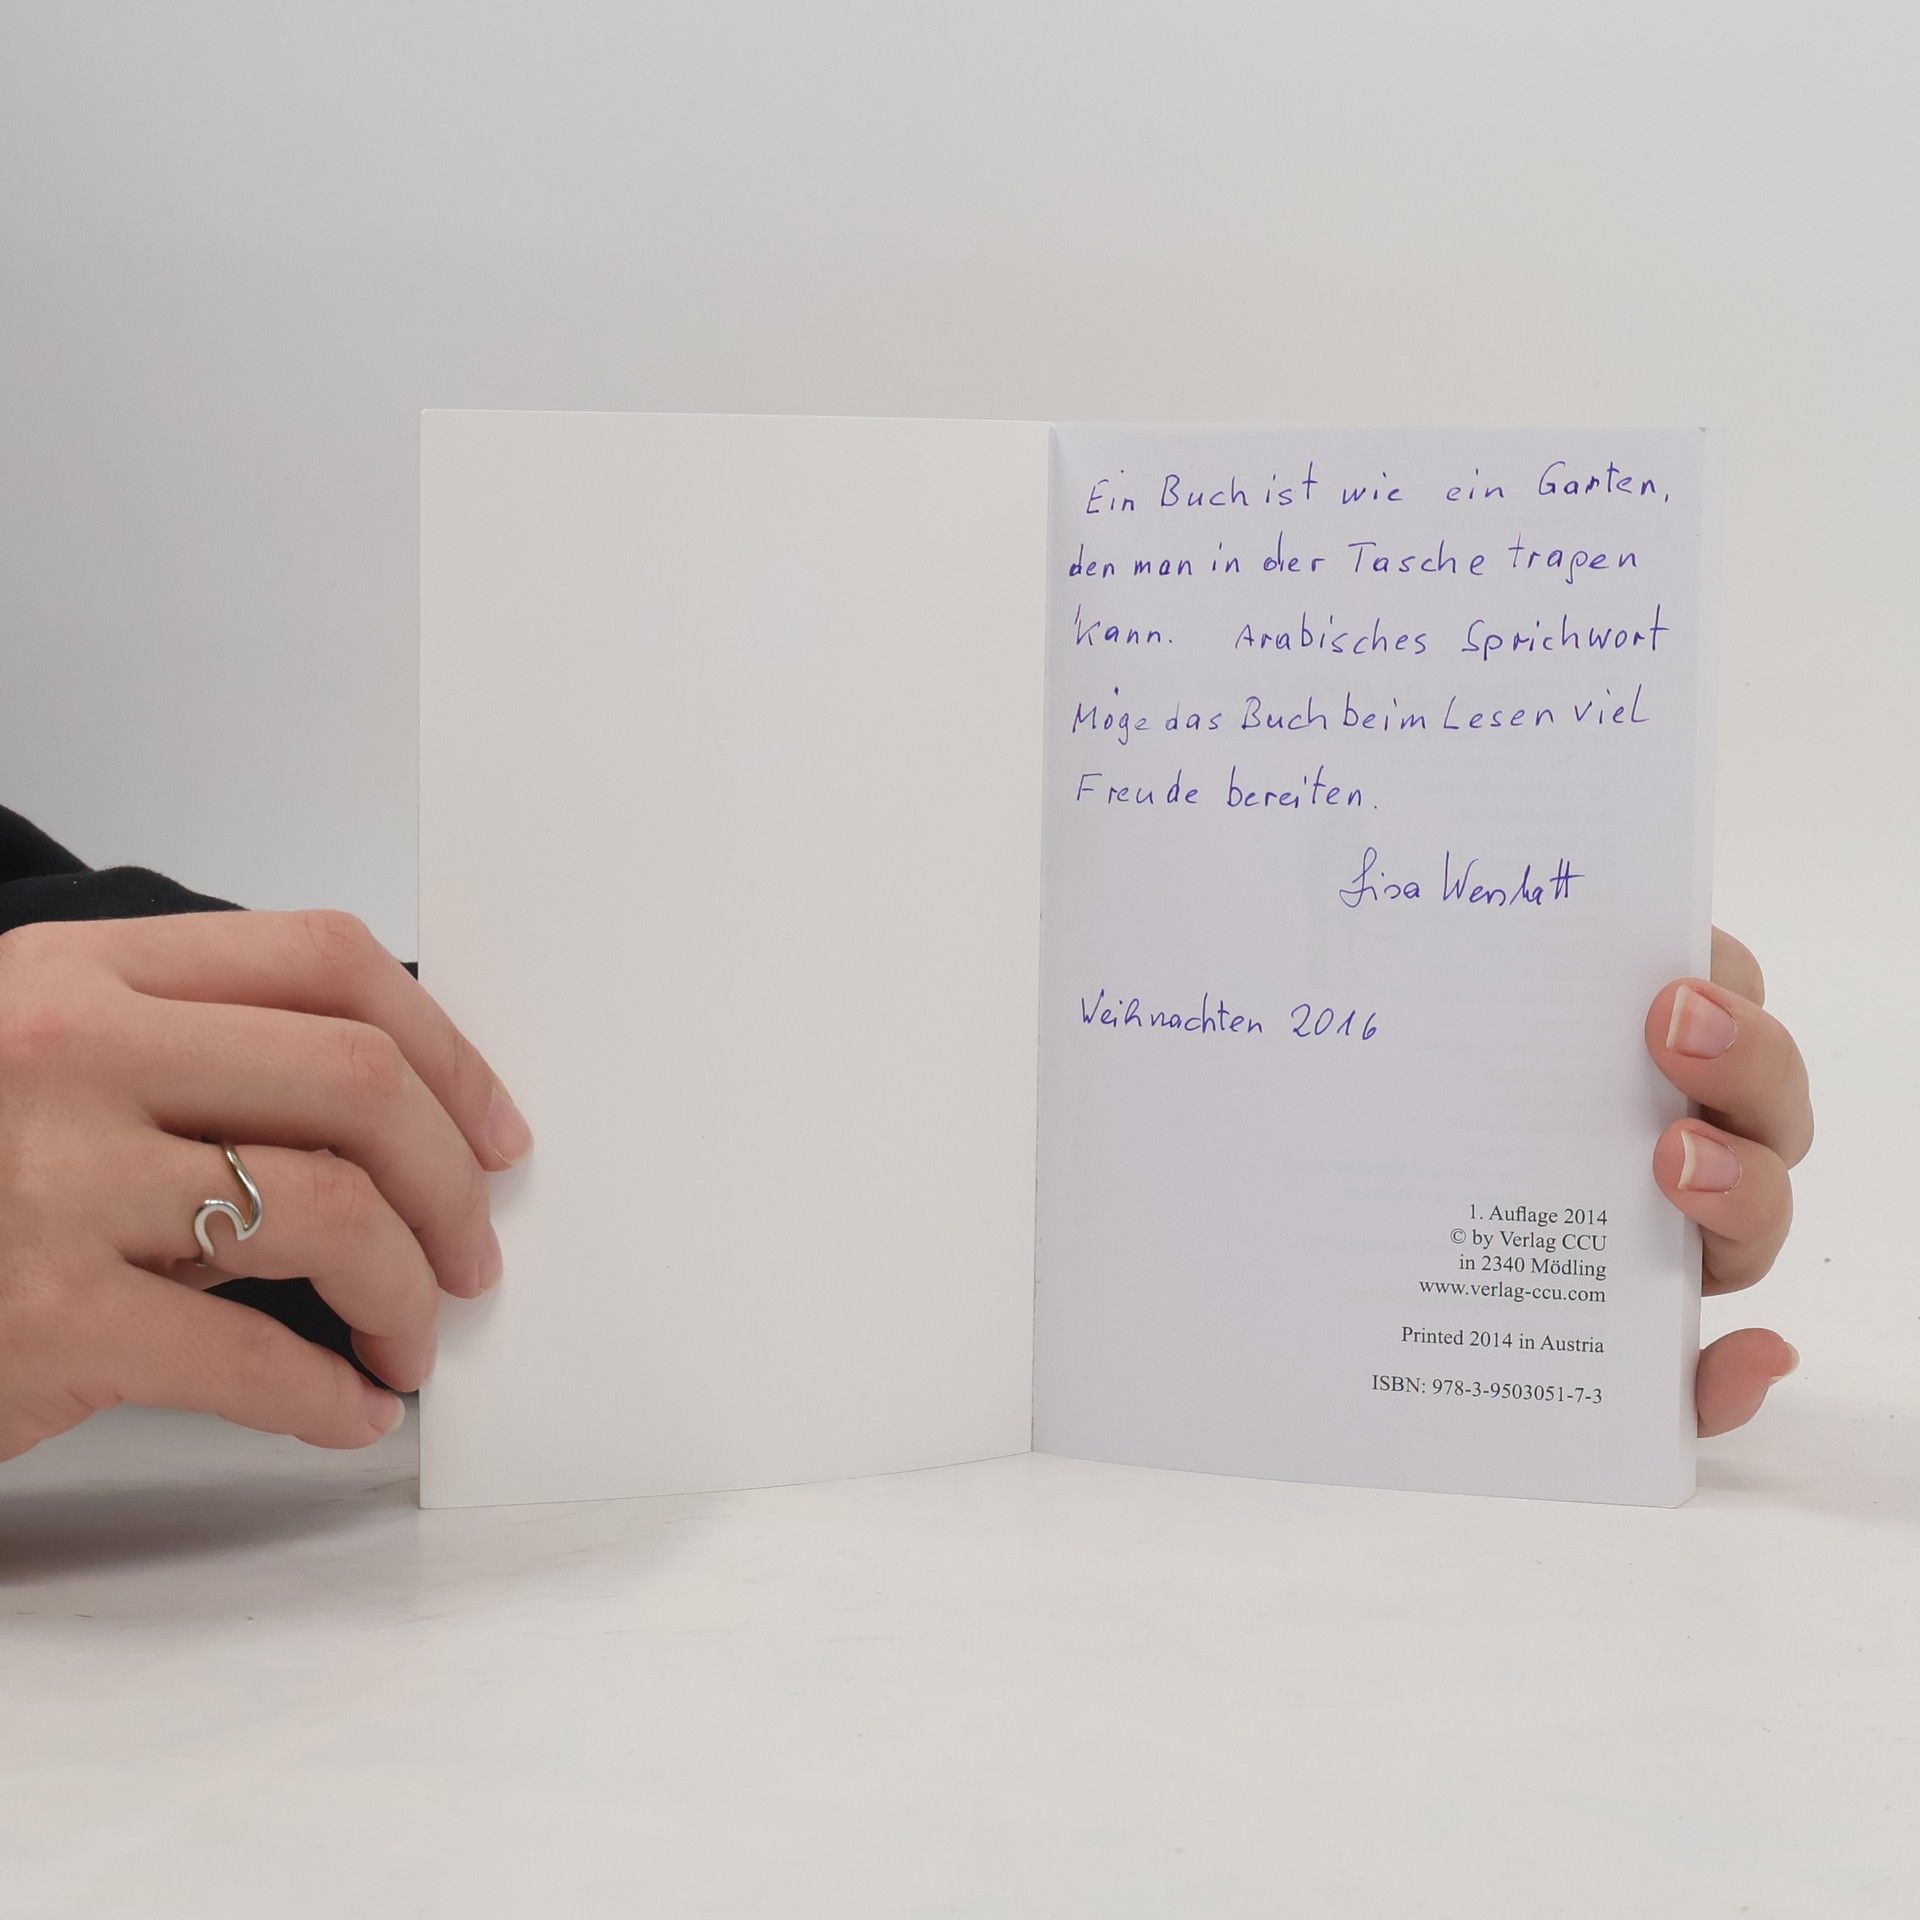 Ein Buch ist wie ein Garten,
den man in der Tasche tragen
kann. Arabisches Sprichwort
Möge das Buch beim Lesen viel
Freude bereiten.
Lisa
Weihnachten 2016
1. Auflage 2014
© by Verlag CCU
in 2340 Mödling
www.verlag-ccu.com
Printed 2014 in Austria
ISBN: 978-3-9503051-7-3